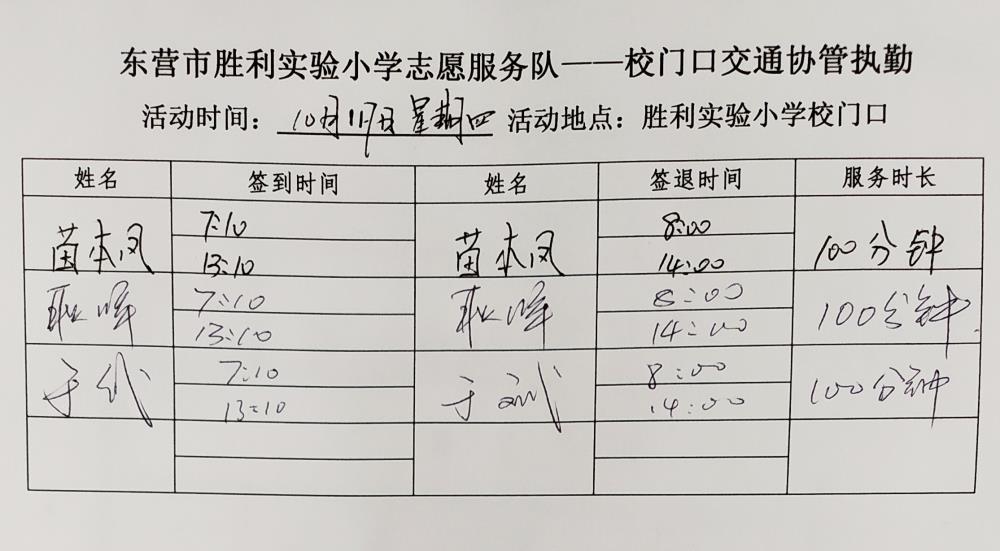 东营市胜利实验小学志愿服务队——校门口交通协管执勤
活动时间：10月11日星期四 活动地点：胜利实验小学校门口
姓名 签到时间 姓名 签退时间 服务时长
苗本凤 7:10 苗本凤 8:00 100分钟
13:10 14:00
7:10 8:00 100分钟
13:10 14:00
于 7:10 于 8:00 100分钟
13:10 14:00